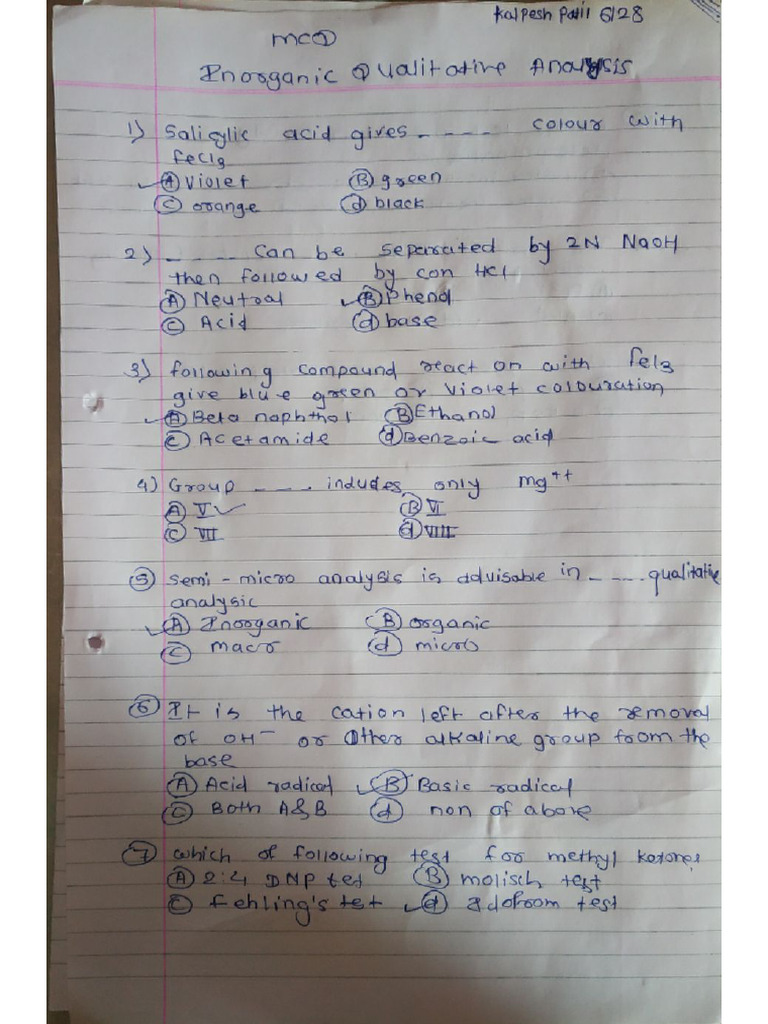 Kalpesh Patil 6128
MCQ
Inorganic Qualitative Analysis
1) Salicylic acid gives ---- colour with
fecl3
(A) Violet (B) green
(C) orange (d) black
2) ---- can be separated by 2N NaOH
then followed by con HCl
(A) Neutral (B) Phenol
(C) Acid (d) base
3) following compound react on with fel3
give blue green or violet colouration
(A) Beta naphthol (B) Ethanol
(C) Acetamide (d) Benzoic acid
4) Group ---- includes only mg++
(A) V (B) VI
(C) VII (d) VIII
(5) semi-micro analysis is advisable in ---- qualitative
analysic
(A) Inorganic (B) organic
(C) macro (d) micro
(6) It is the cation left after the removal
of OH- or Other alkaline group from the
base
(A) Acid radical (B) Basic radical
(C) Both A&B (d) non of above
(7) which of following test for methyl ketones
(A) 2:4 DNP tet (B) molisch test
(C) fehling's tet (d) Idoform test